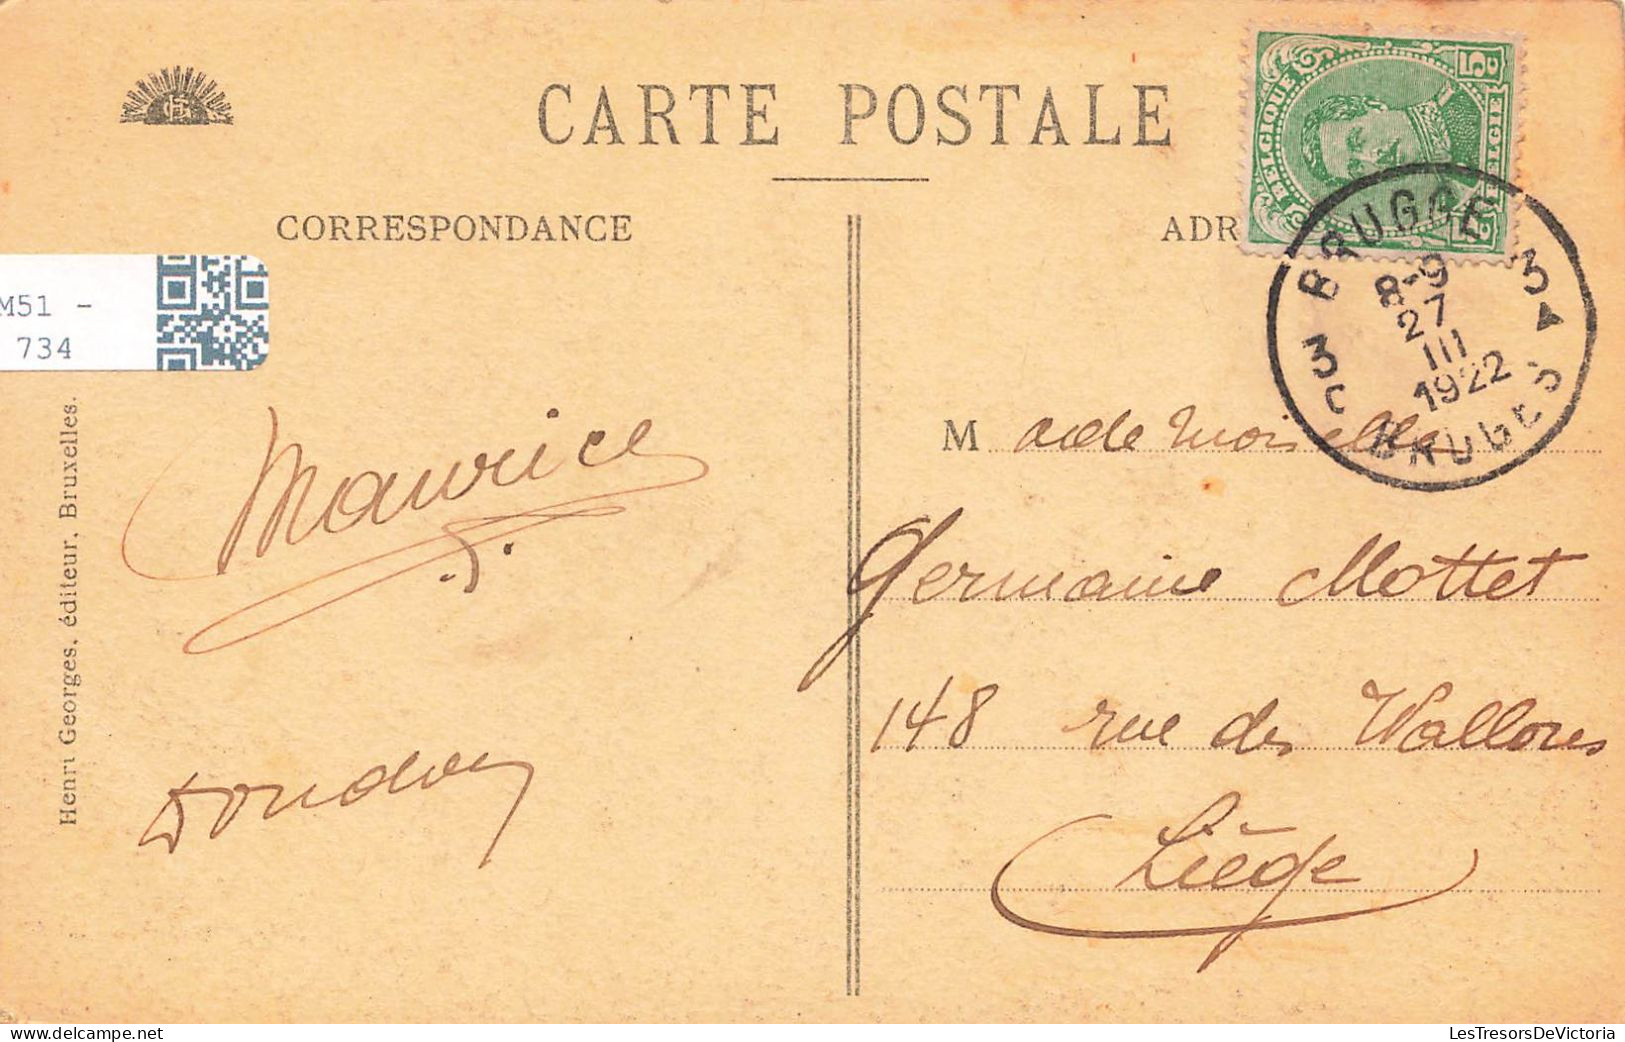 CARTE POSTALE
CORRESPONDANCE
ADR
BELGIQUE
5c
BELGIË
BRUGGE
3 3
8-9
27
III
1922
C
BRUGES
M51 -
734
Henri Georges, éditeur, Bruxelles.
Maurice
Mademoiselle
Germaine Mottet
148 rue des Wallons
Liège
Delcampe.net
LesTresorsDeVictoria